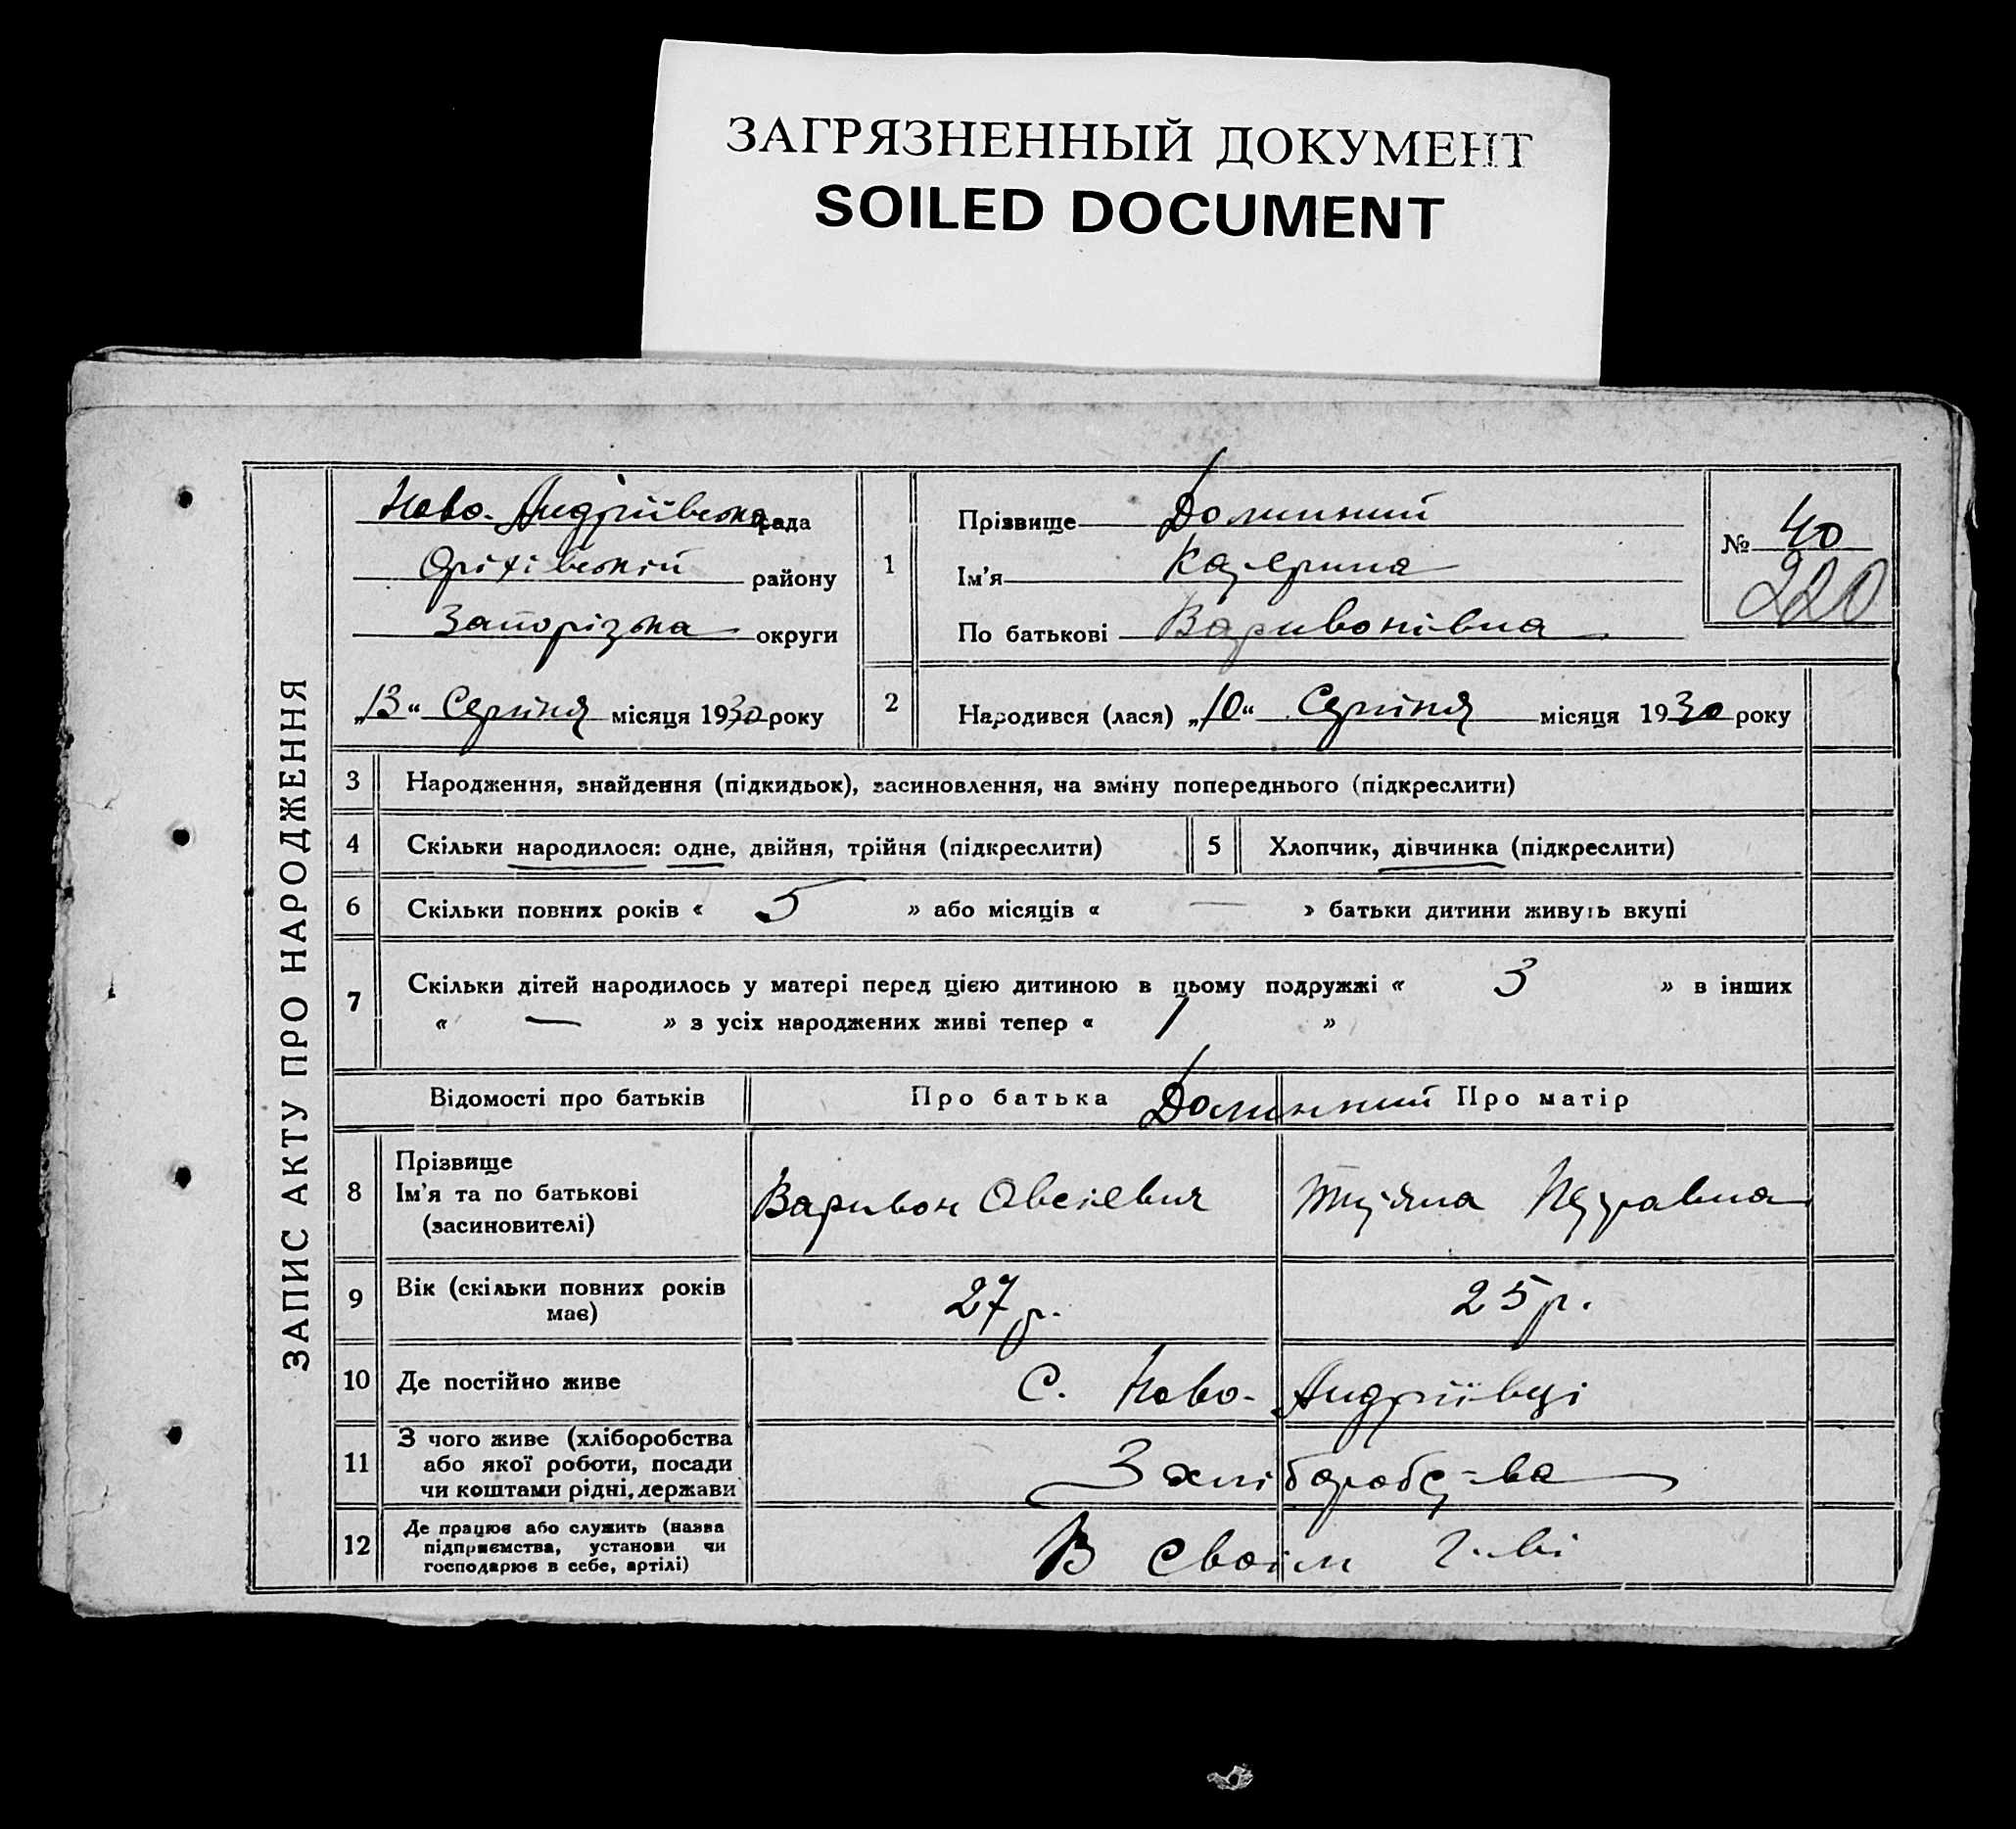 ЗАГРЯЗНЕННЫЙ ДОКУМЕНТ
SOILED DOCUMENT
ЗАПИС АКТУ ПРО НАРОДЖЕННЯ
Ново-Андріївська рада
Оріхівській району
Запорізька округи
„13“ Серпня місяця 1930 року
1
Прізвище
Ім'я Катерина
По батькові Варивонівна
№ 40
220
2 Народився (лася) „10“ Серпня місяця 1930 року
3 Народження, знайдення (підкидьок), засиновлення, на зміну попереднього (підкреслити)
4 Скільки народилося: одне, двійня, трійня (підкреслити) 5 Хлопчик, дівчинка (підкреслити)
6 Скільки повних років « 5 » або місяців « — » батьки дитини живуть вкупі
7 Скільки дітей народилось у матері перед цією дитиною в цьому подружжі « 3 » в інших
« — » з усіх народжених живі тепер « 1 »
Відомості про батьків Про батька Про матір
8 Прізвище
Ім'я та по батькові
(засиновителі)
Варивон Овсієвич Тетяна Петравна
9 Вік (скільки повних років
має)
27 р. 25 р.
10 Де постійно живе С. Ново-Андріївці
11 З чого живе (хліборобства
або якої роботи, посади
чи коштами рідні, держави
З хліборобст-ва
12 Де працює або служить (назва
підприємства, установи чи
господарює в себе, артілі)
В своїм г-ві